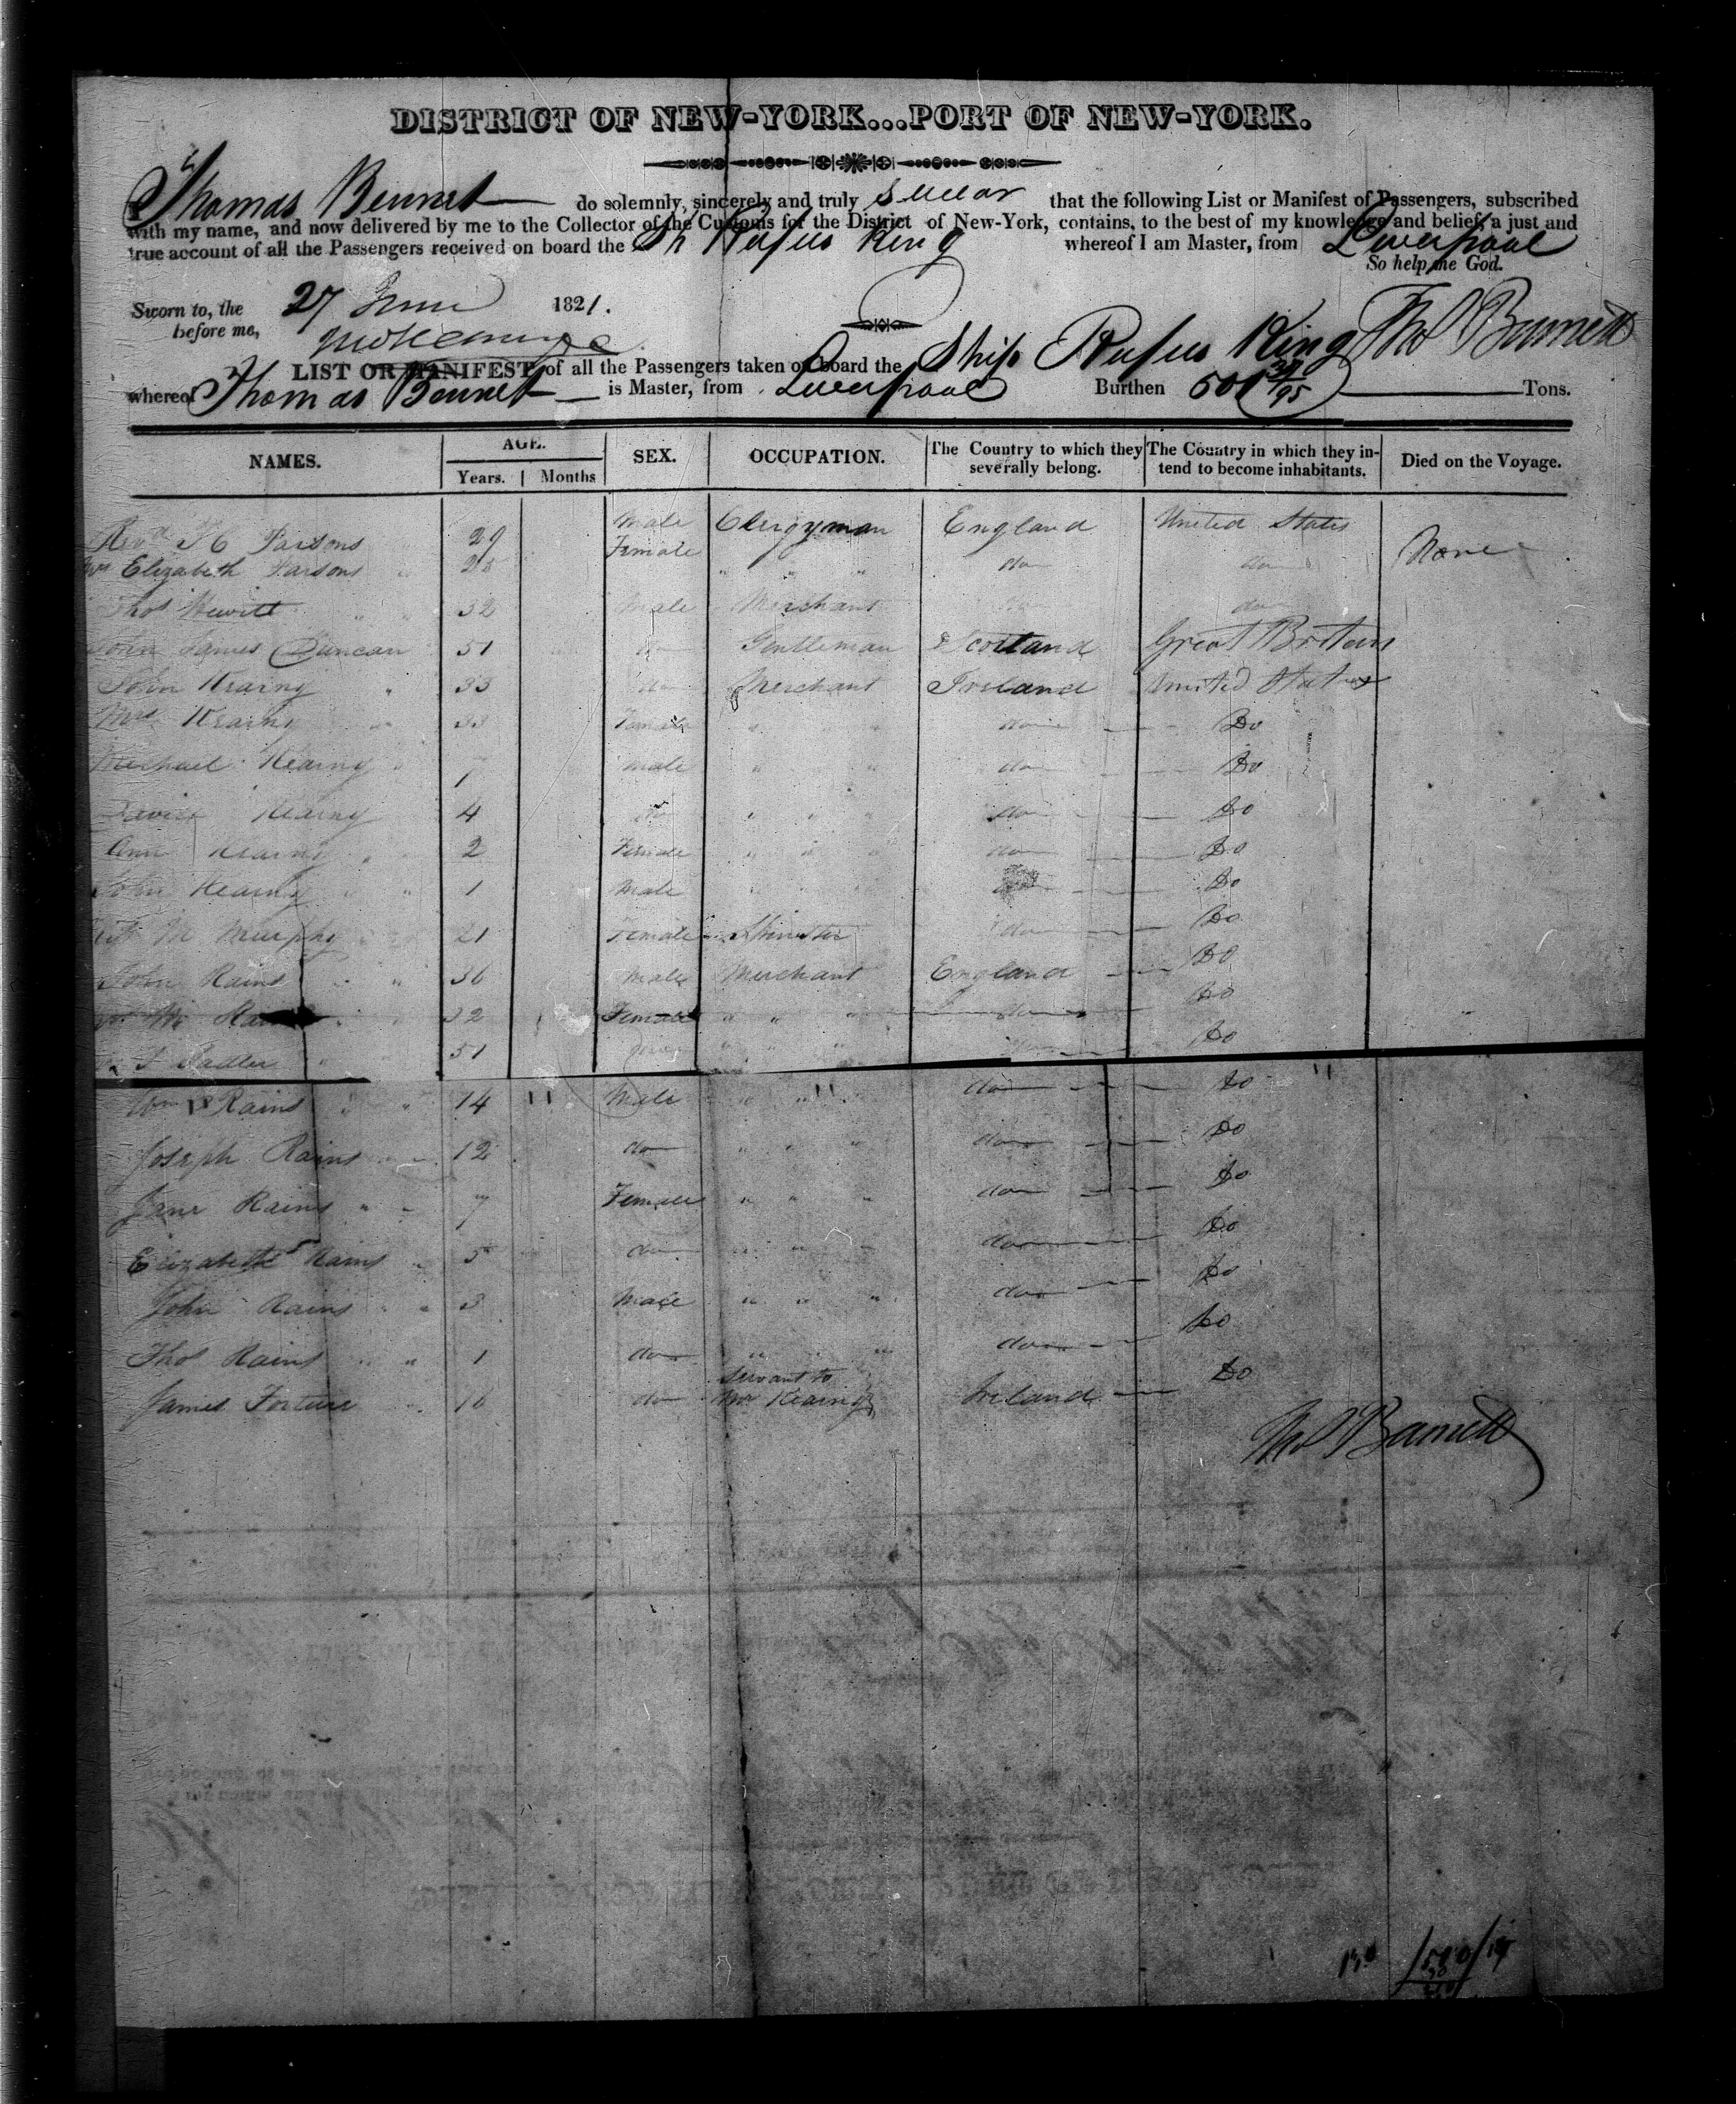 DISTRICT OF NEW-YORK...PORT OF NEW-YORK.
Thomas Bennet do solemnly, sincerely and truly swear that the following List or Manifest of Passengers, subscribed
with my name, and now delivered by me to the Collector of the Customs for the District of New-York, contains, to the best of my knowledge and belief, a just and
true account of all the Passengers received on board the Sh Rufus King whereof I am Master, from Liverpool
So help me God.
Sworn to, the 27 June 1821.
before me,
Thos Bennett
LIST OR MANIFEST of all the Passengers taken on board the Ship Rufus King
whereof Thomas Bennet is Master, from Liverpool Burthen 501 /95 Tons.
NAMES. AGE. SEX. OCCUPATION. The Country to which they severally belong. The Country in which they intend to become inhabitants. Died on the Voyage.
Years. Months
Revd Parsons 29 Male Clergyman England United States None
Mrs Elizabeth Parsons Female " " " do do
Thos Hewitt 32 Male Merchant do do
John James Duncan 51 do Gentleman Scotland Great Britain
John Kearny 33 do Merchant Ireland United States
Mrs Kearny 33 Female " " do Do
Michael Kearny 7 Male " " do Do
David Kearny 4 do " " " do Do
Ann Kearny 2 Female " " " do Do
John Kearny 1 Male do Do
M Murphy 21 Female Spinster do Do
John Rains 36 Male Merchant England Do
32 Female " " " do Do
Sadler 51 " " " do Do
Wm Rains 14 " Male " " " do Do
Joseph Rains 12 do " " " do Do
Jane Rains 7 Female " " " do Do
Elizabeth Rains 5 do " " " do Do
John Rains 3 Male " " " do Do
Thos Rains 1 do " " " do Do
James Fortune 16 do Servant to Mr Kearny Ireland Do
Thos Bennett